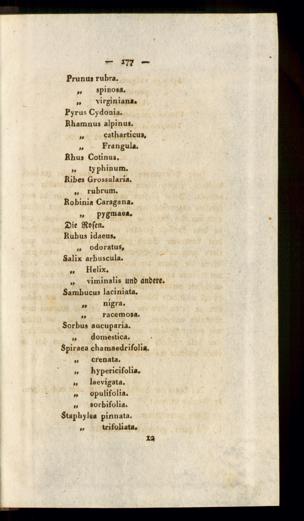 — 177 —
Prunus rubra.
„ spinosa.
„ virginiana.
Pyrus Cydonia.
Rhamnus alpinus.
„ catharticus.
„ Frangula.
Rhus Cotinus.
„ typhinum.
Ribes Grossularia.
„ rubrum.
Robinia Caragana.
„ pygmaea.
Die Rosen.
Rubus idaeus.
„ odoratus.
Salix arbuscula.
„ Helix.
„ viminalis und andere.
Sambucus laciniata.
„ nigra.
„ racemosa.
Sorbus aucuparia.
„ domestica.
Spiraea chamaedrifolia.
„ crenata.
„ hypericifolia.
„ laevigata.
„ opulifolia.
„ sorbifolia.
Staphylea pinnata.
„ trifoliata.
12